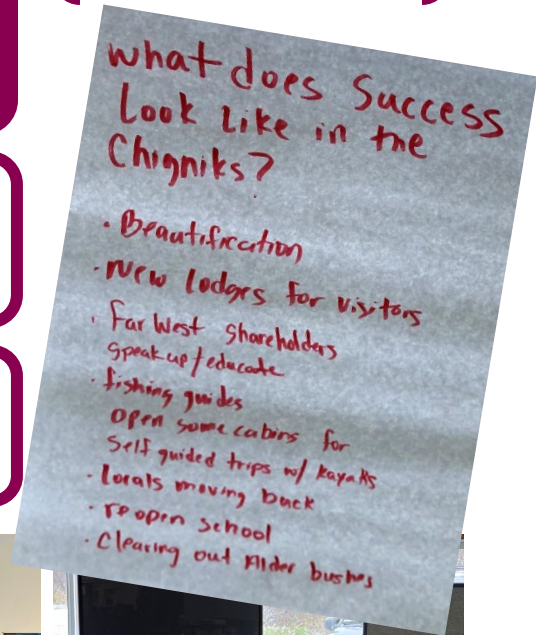 what does Success
Look Like in the
Chigniks?
• Beautification
• New lodges for visitors
• Far West Shareholders
speak up / educate
• fishing guides
open some cabins for
Self guided trips w/ kayaks
• locals moving back
• reopen school
• Clearing out Alder bushes